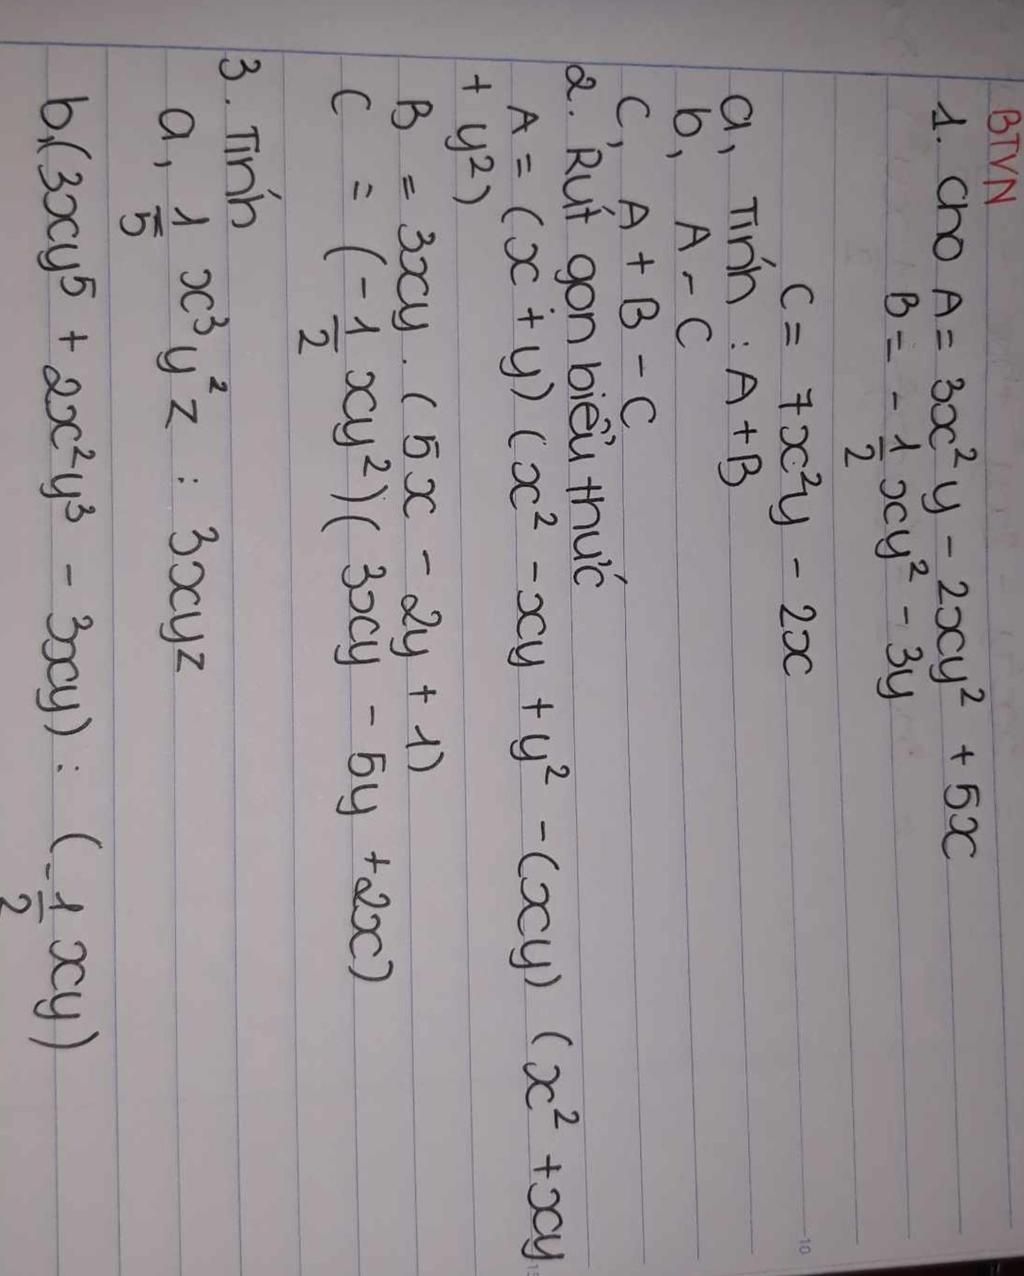 BTVN
1. Cho A = 3x²y - 2xy² + 5x
B = - 1/2 xy² - 3y
C = 7x²y - 2x
a, Tính : A + B
b, A - C
C, A + B - C
2. Rút gọn biểu thức
A = (x + y) (x² - xy + y² - (xy) (x² + xy
+ y²)
B = 3xy . (5x - 2y + 1)
C = (- 1/2 xy²) (3xy - 5y + 2x)
3. Tính
a, 1/5 x³y²z : 3xyz
b, (3xy⁵ + 2x²y³ - 3xy) : (- 1/2 xy)